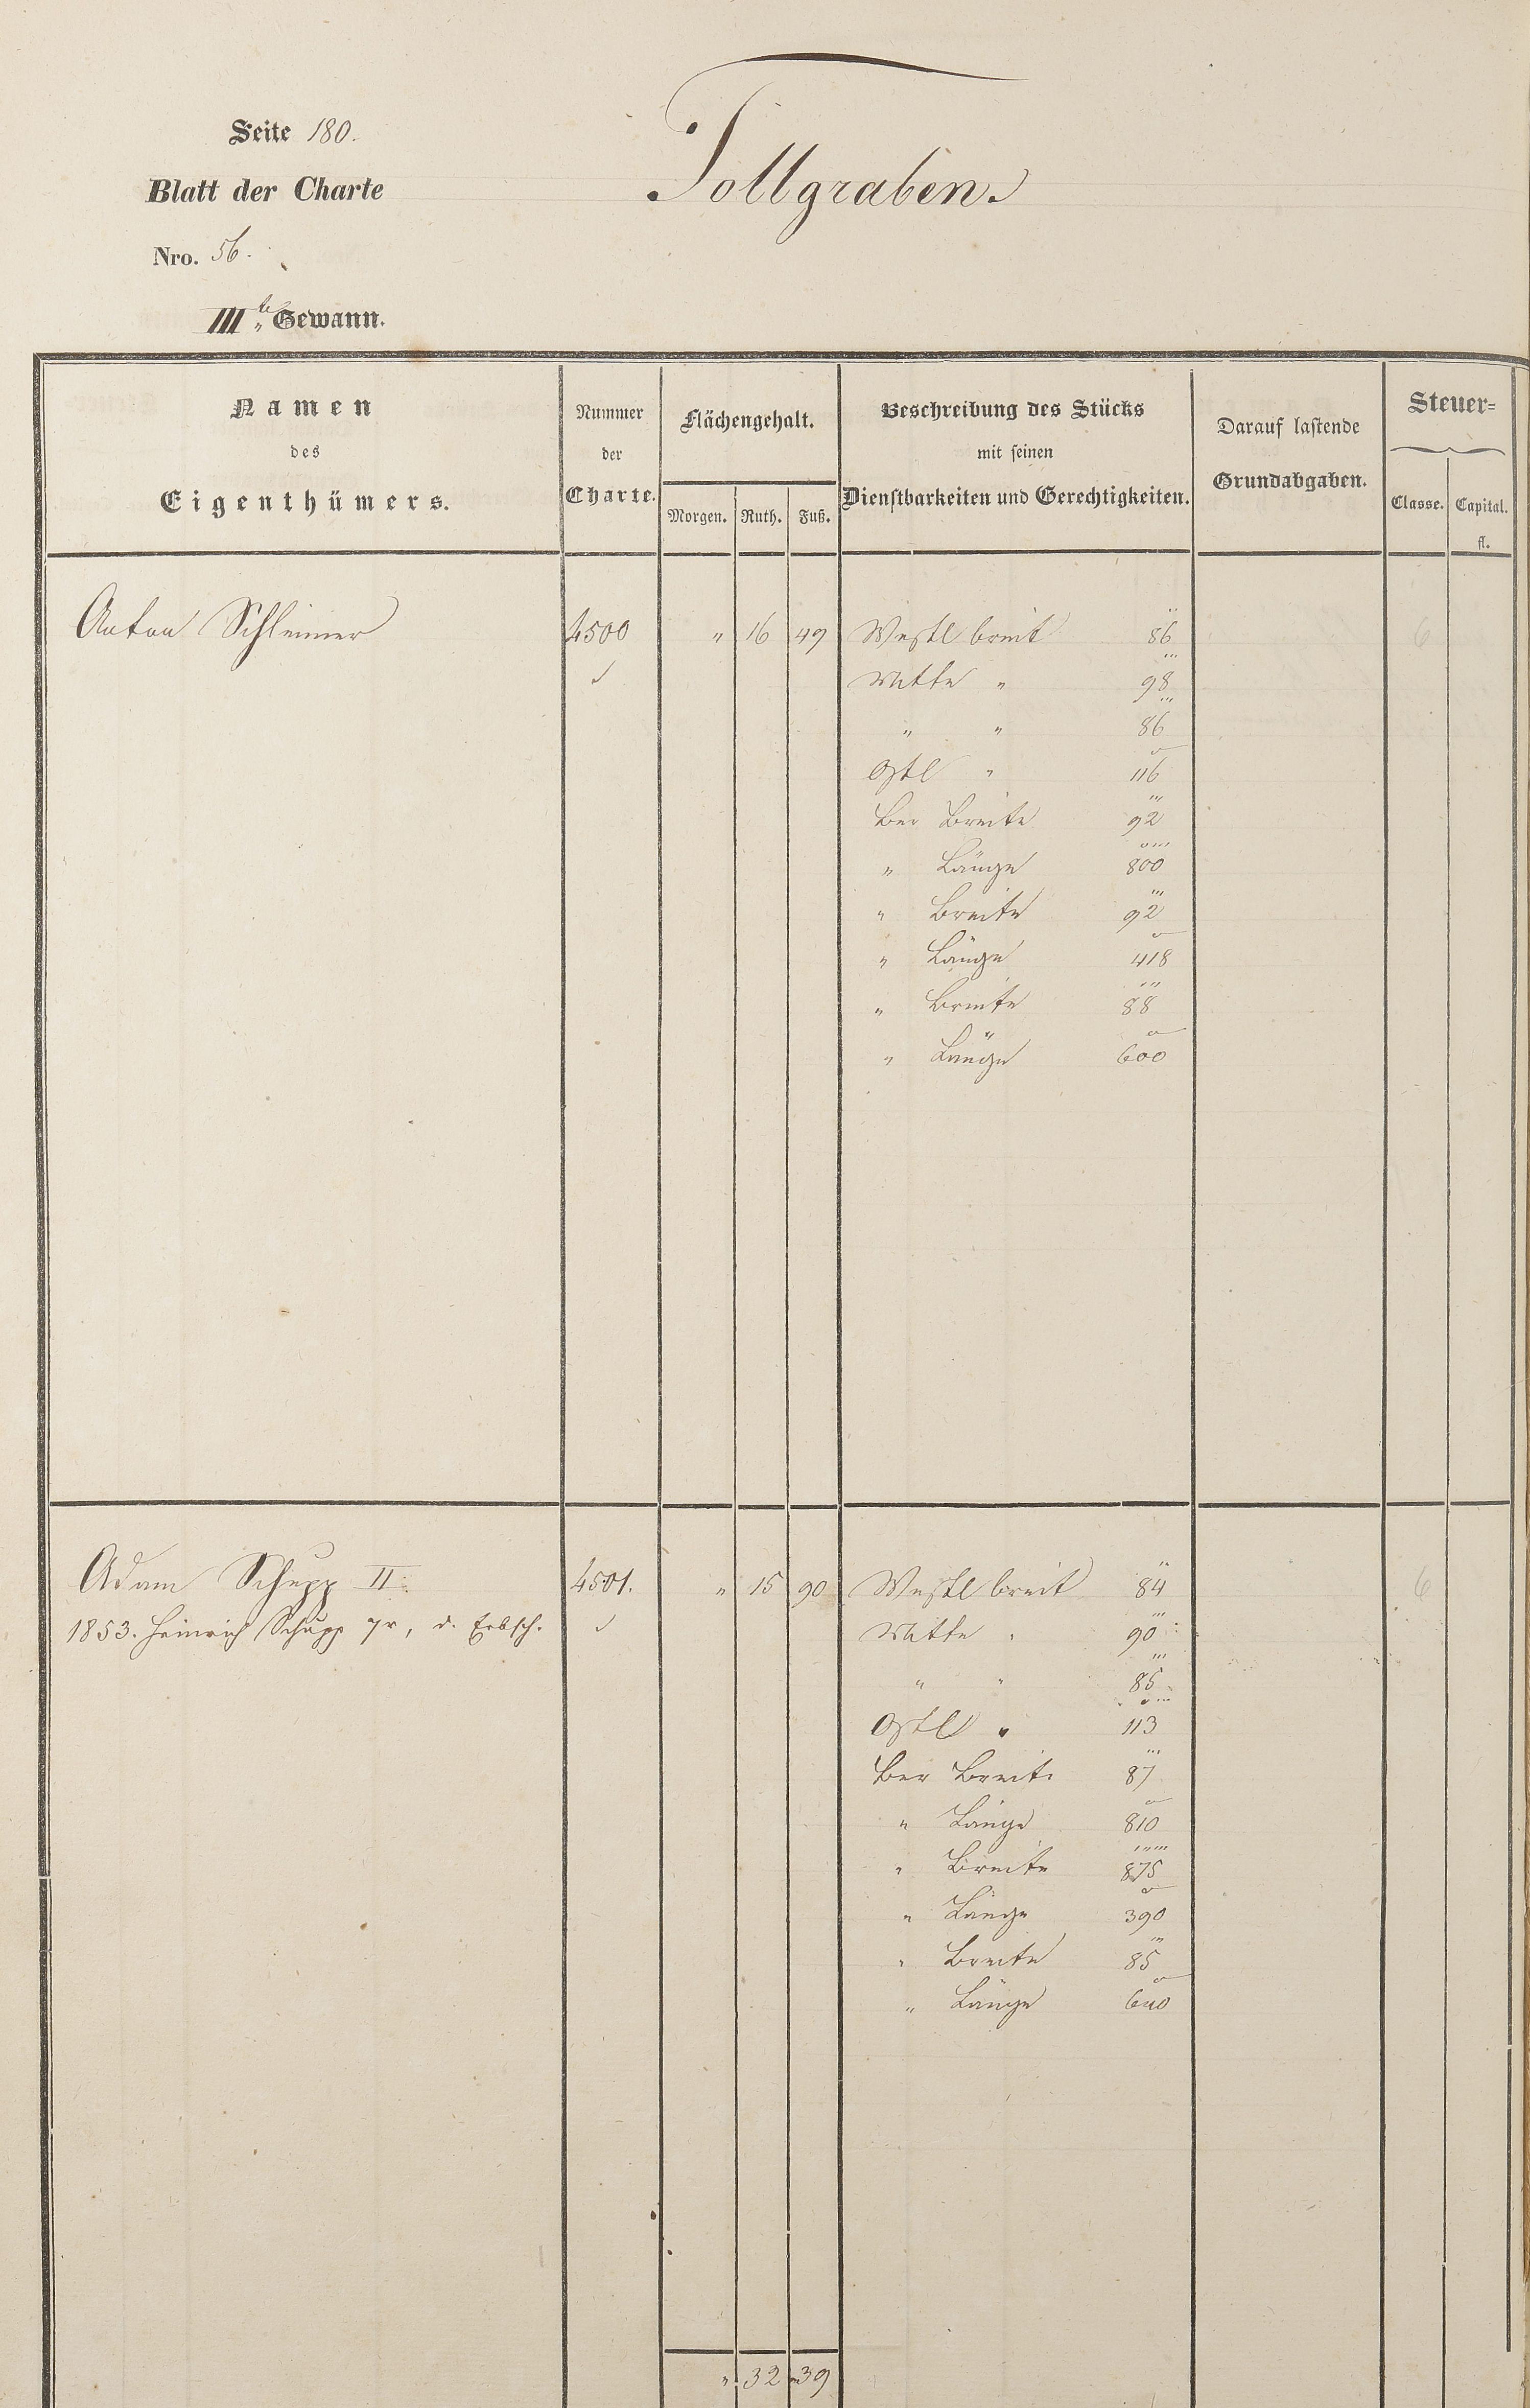 Seite 180.
Tollgraben.
Blatt der Charte
Nro. 56.
III te Gewann.
Namen des Eigenthümers.
Nummer der Charte.
Flächengehalt.
Morgen. Ruth. Fuß.
Beschreibung des Stücks mit seinen Dienstbarkeiten und Gerechtigkeiten.
Darauf lastende Grundabgaben.
Steuer-
Classe. Capital. fl.
Anton Schleimer 4500 " 16 49 Westl breit 86 6
Mitte " 98
" " 86
Ostl " 116
Ber Breite 92
" Länge 800
" Breite 92
" Länge 418
" Breite 88
" Länge 600
Adam Schupp II. 4501. " 15 90 Westl breit 84 6
1853. Heinrich Schupp 7r, d. Erbsch. Mitte " 90
" " 85
Ostl " 113
Ber Breite 87
" Länge 810
" Breite 875
" Länge 390
" Breite 85
" Länge 600
" 32 39